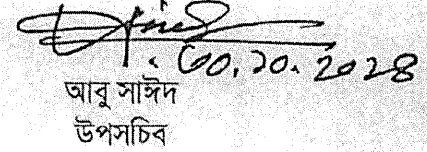 ৩০.১০.২০২৪
আবু সাঈদ
উপসচিব